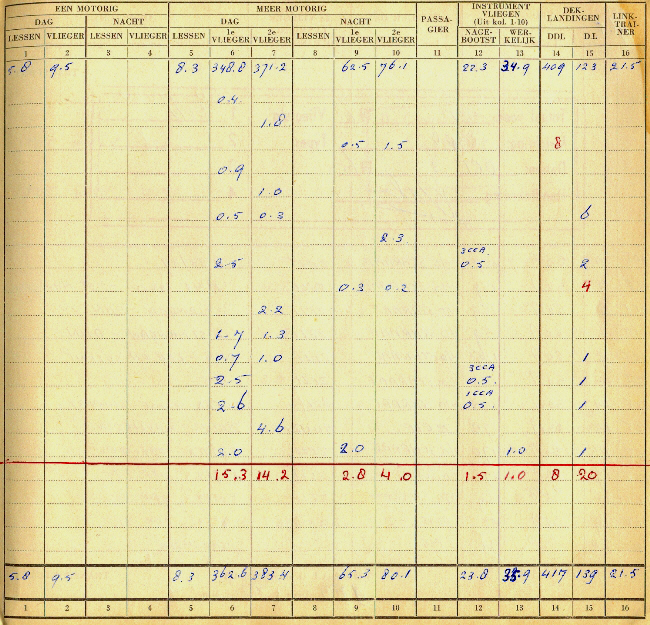 EEN MOTORIG MEER MOTORIG PASSA-GIER INSTRUMENT VLIEGEN (Uit kol. 1-10) DEK-LANDINGEN LINK-TRAI-NER
DAG NACHT DAG NACHT
LESSEN VLIEGER LESSEN VLIEGER LESSEN 1e VLIEGER 2e VLIEGER LESSEN 1e VLIEGER 2e VLIEGER NAGE-BOOTST WER-KELIJK DDL D.L.
1 2 3 4 5 6 7 8 9 10 11 12 13 14 15 16
5.8 9.5 8.3 348.8 371.2 62.5 76.1 22.3 34.9 409 123 21.5
0.4
1.8
0.5 1.5 8
0.9
1.0
0.5 0.3 6
2.3
3CCA
2.5 0.5 2
0.3 0.2 4
2.2
1.7 1.3
0.7 1.0 1
3CCA
2.5 0.5 1
1CCA
2.6 0.5 1
4.6
2.0 2.0 1.0 1
15.3 14.2 2.8 4.0 1.5 1.0 8 20
5.8 9.5 8.3 362.6 383.4 65.3 80.1 23.8 35.9 417 139 21.5
1 2 3 4 5 6 7 8 9 10 11 12 13 14 15 16